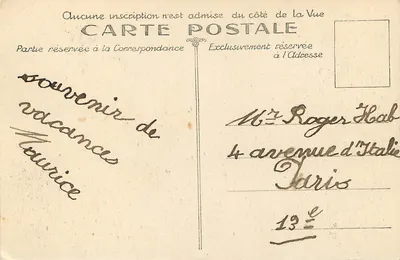 Aucune inscription n'est admise du côté de la Vue
CARTE POSTALE
Partie réservée à la Correspondance
Exclusivement réservée
à l'Adresse
souvenir de
vacances
Maurice
Mr Roger Hab
4 avenue d'Italie
Paris
13e